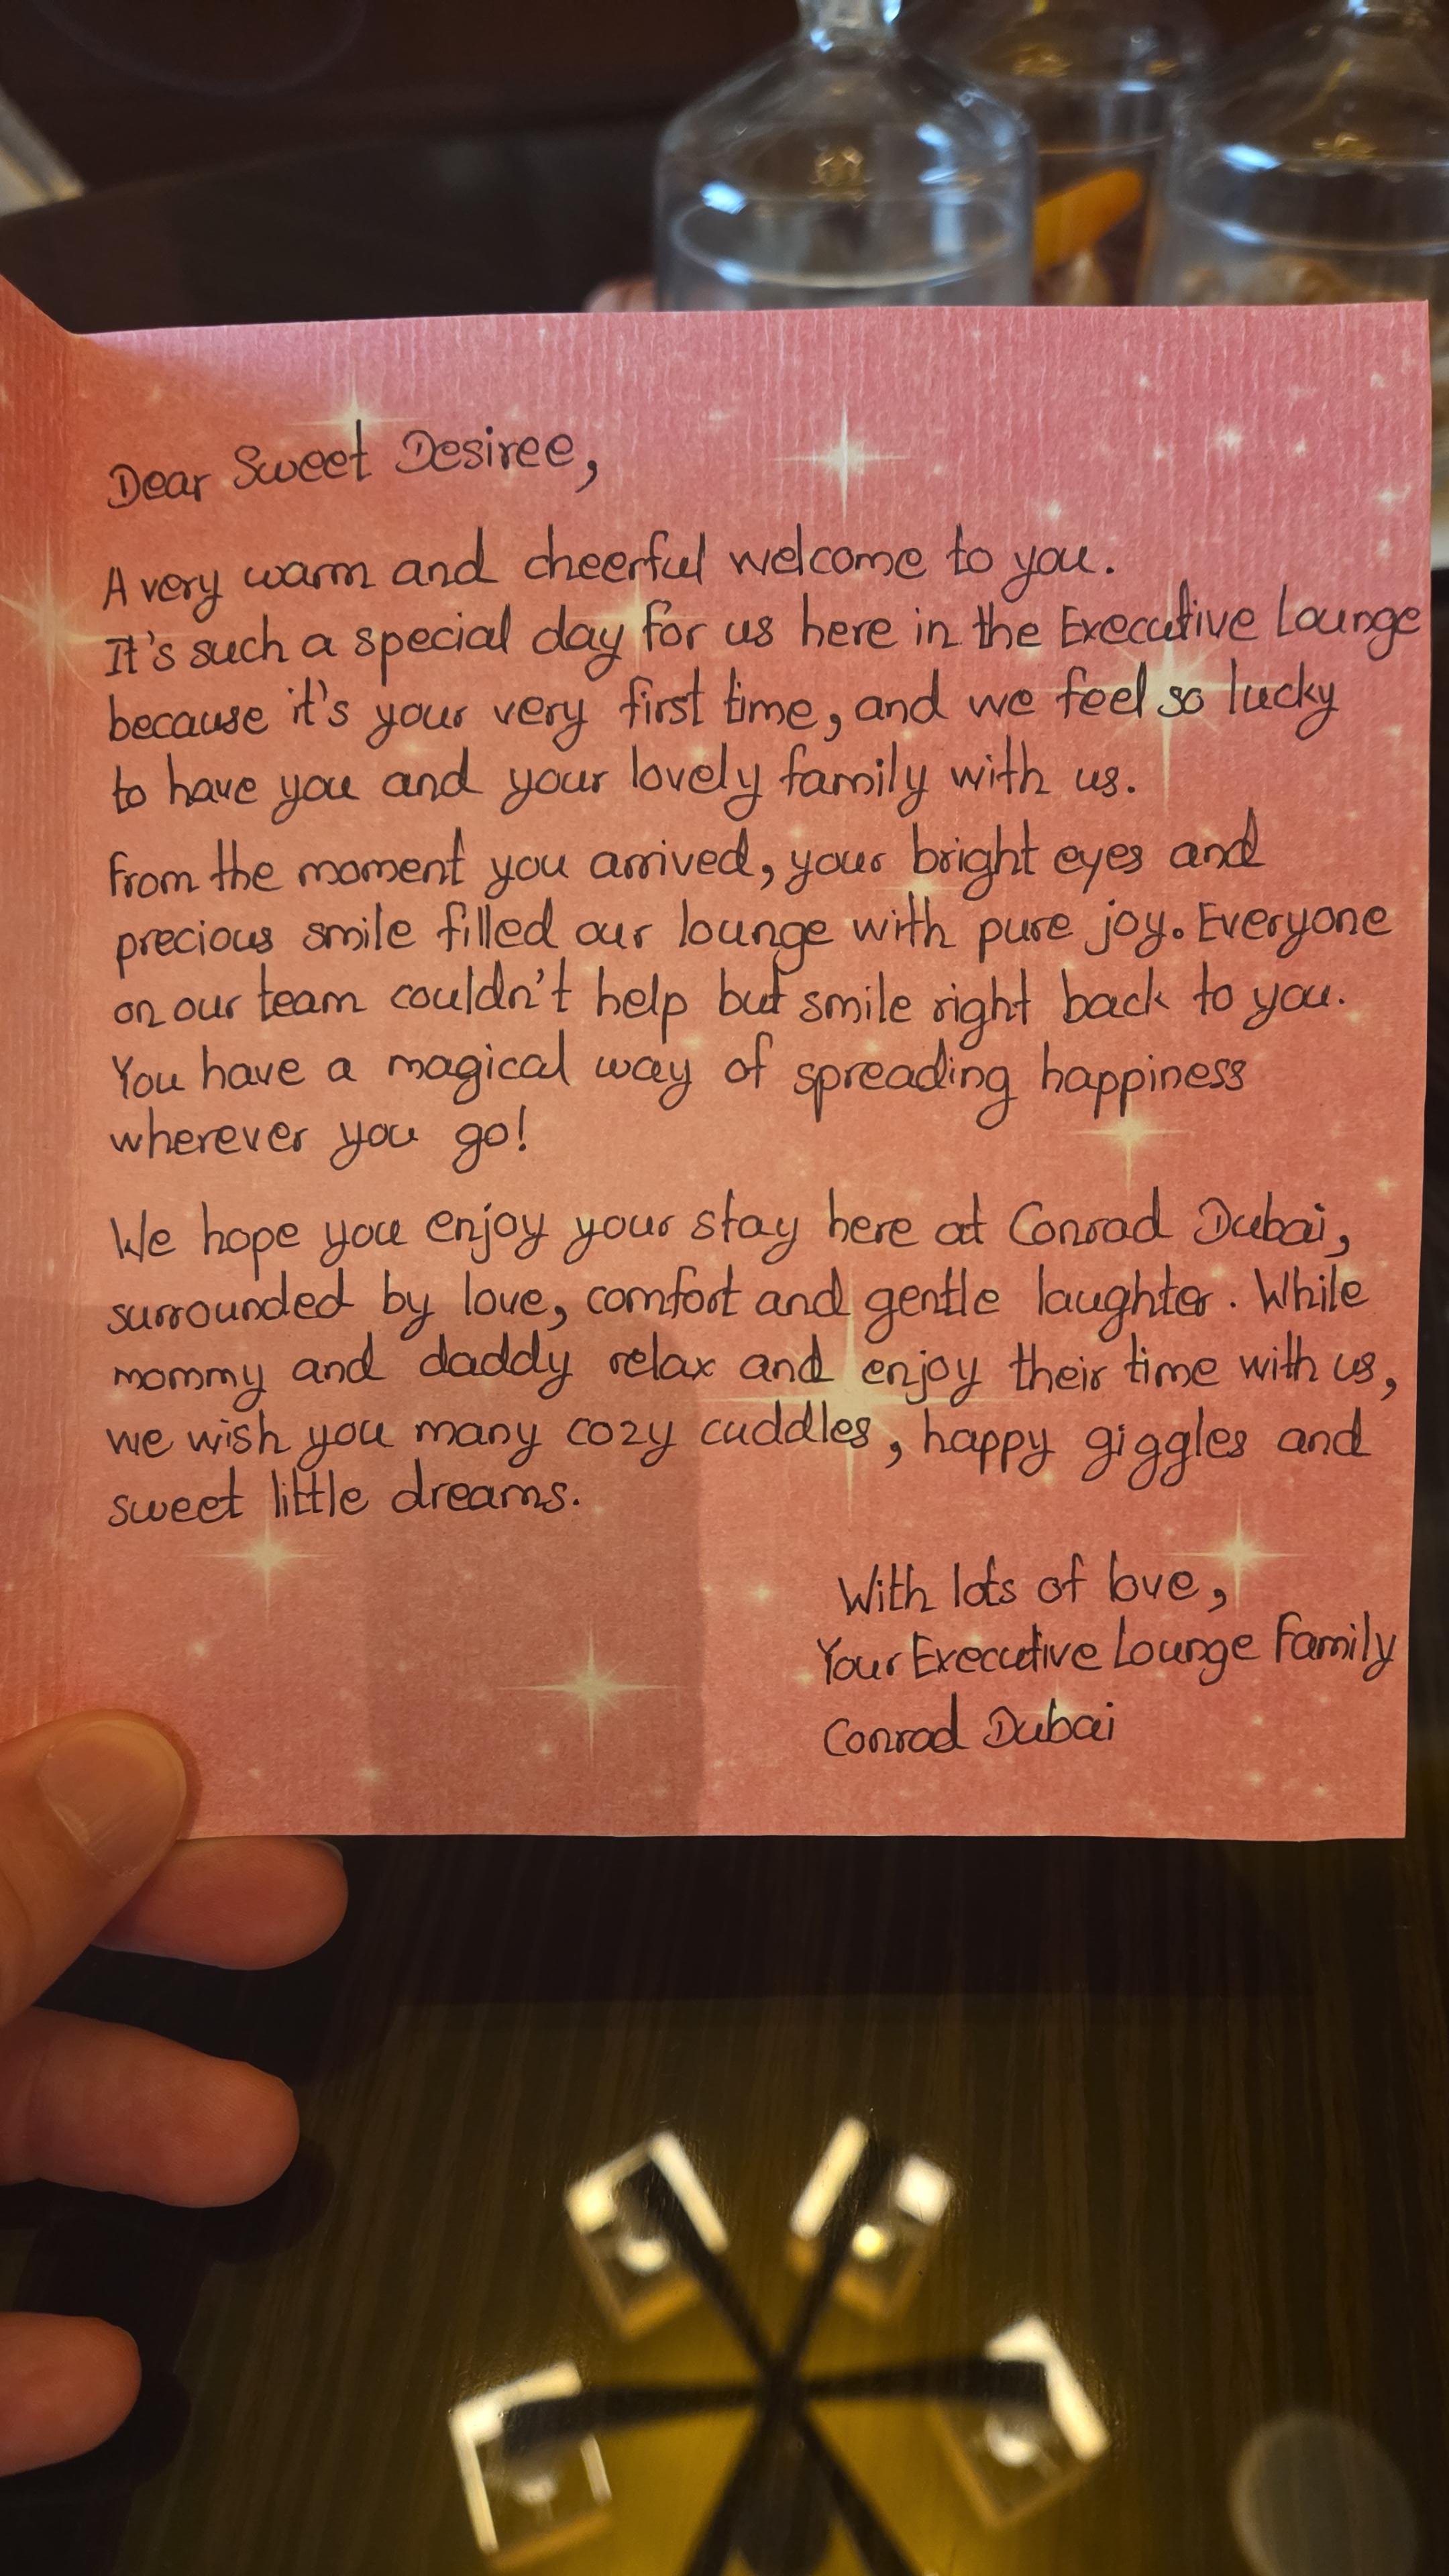 Dear Sweet Desiree,
A very warm and cheerful welcome to you.
It's such a special day for us here in the Executive Lounge
because it's your very first time, and we feel so lucky
to have you and your lovely family with us.
From the moment you arrived, your bright eyes and
precious smile filled our lounge with pure joy. Everyone
on our team couldn't help but smile right back to you.
You have a magical way of spreading happiness
wherever you go!
We hope you enjoy your stay here at Conrad Dubai,
surrounded by love, comfort and gentle laughter. While
mommy and daddy relax and enjoy their time with us,
we wish you many cozy cuddles, happy giggles and
sweet little dreams.
With lots of love,
Your Executive Lounge Family
Conrad Dubai